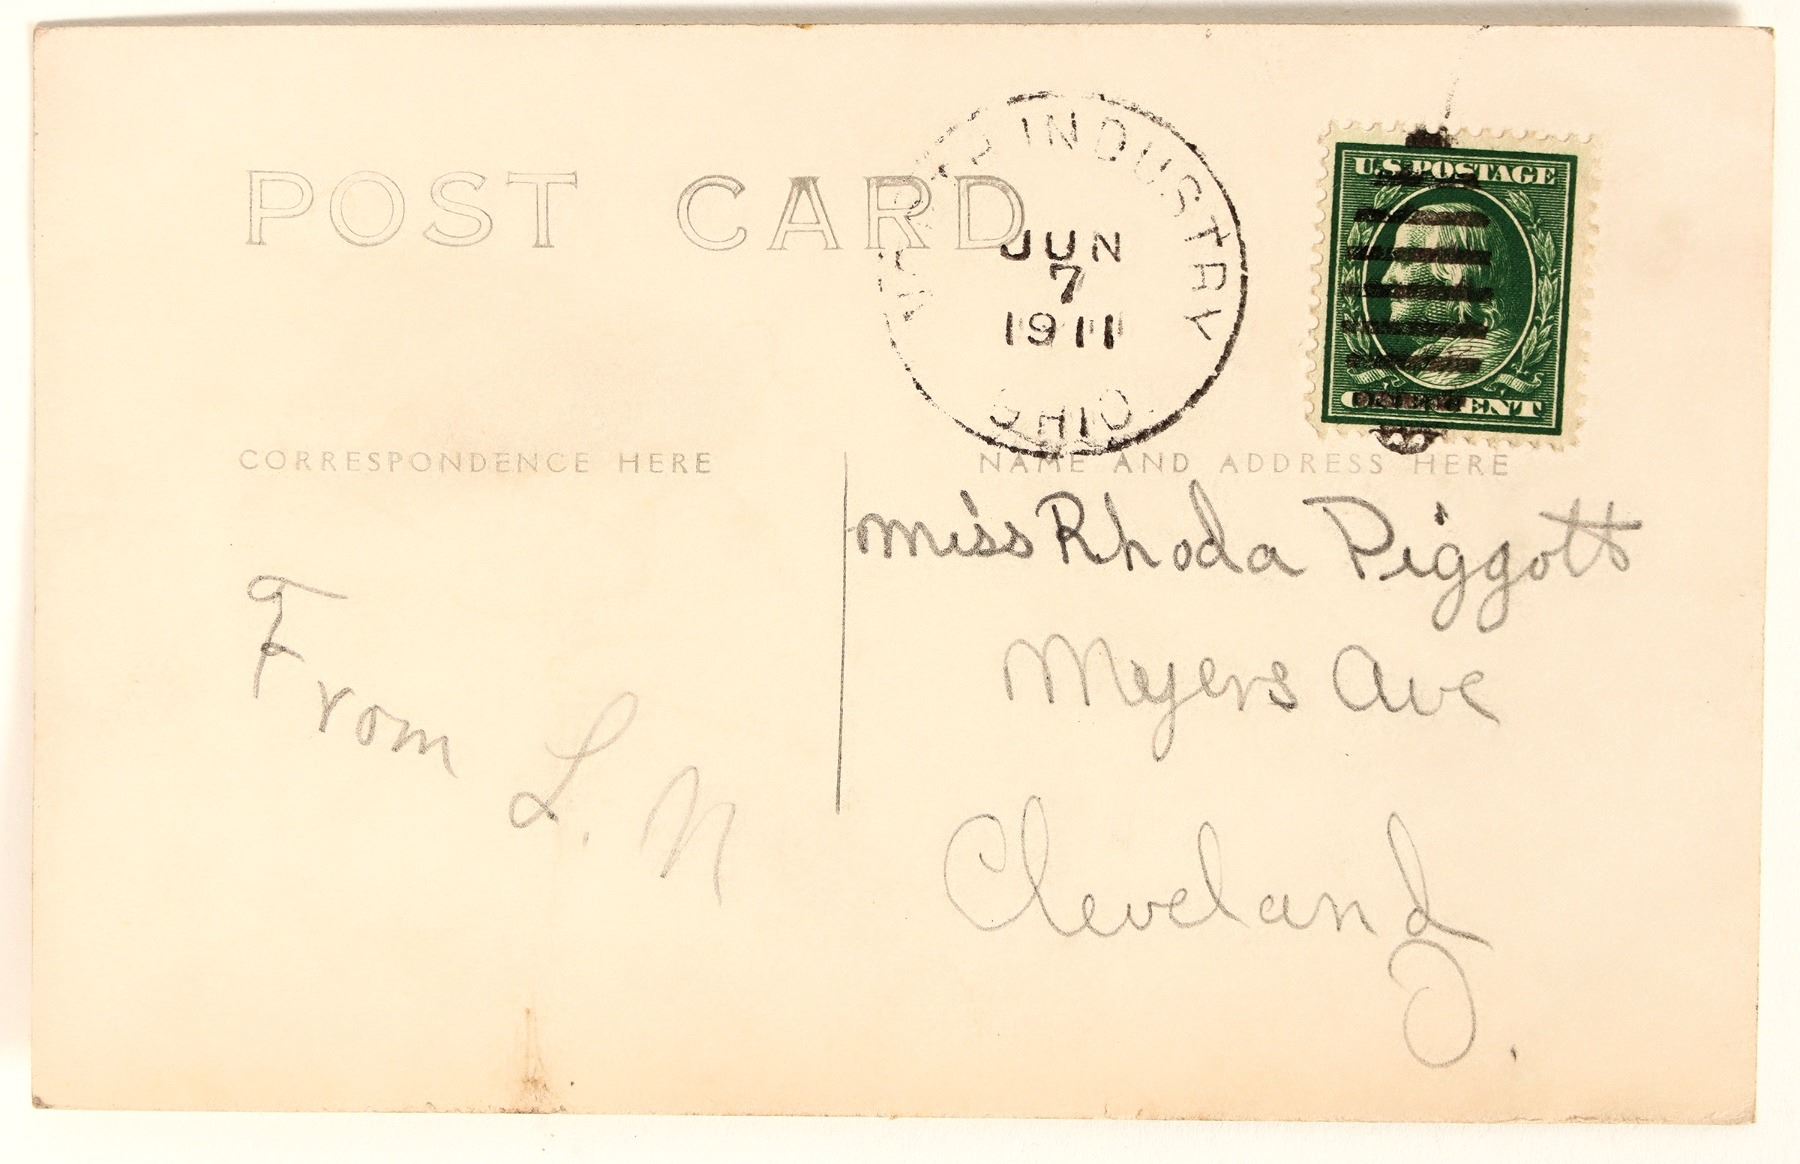 POST CARD
INDUSTRY
JUN
7
1911
OHIO
U.S. POSTAGE
ONE CENT
CORRESPONDENCE HERE
NAME AND ADDRESS HERE
Miss Rhoda Piggott
Myers Ave
Cleveland
O.
From L. N